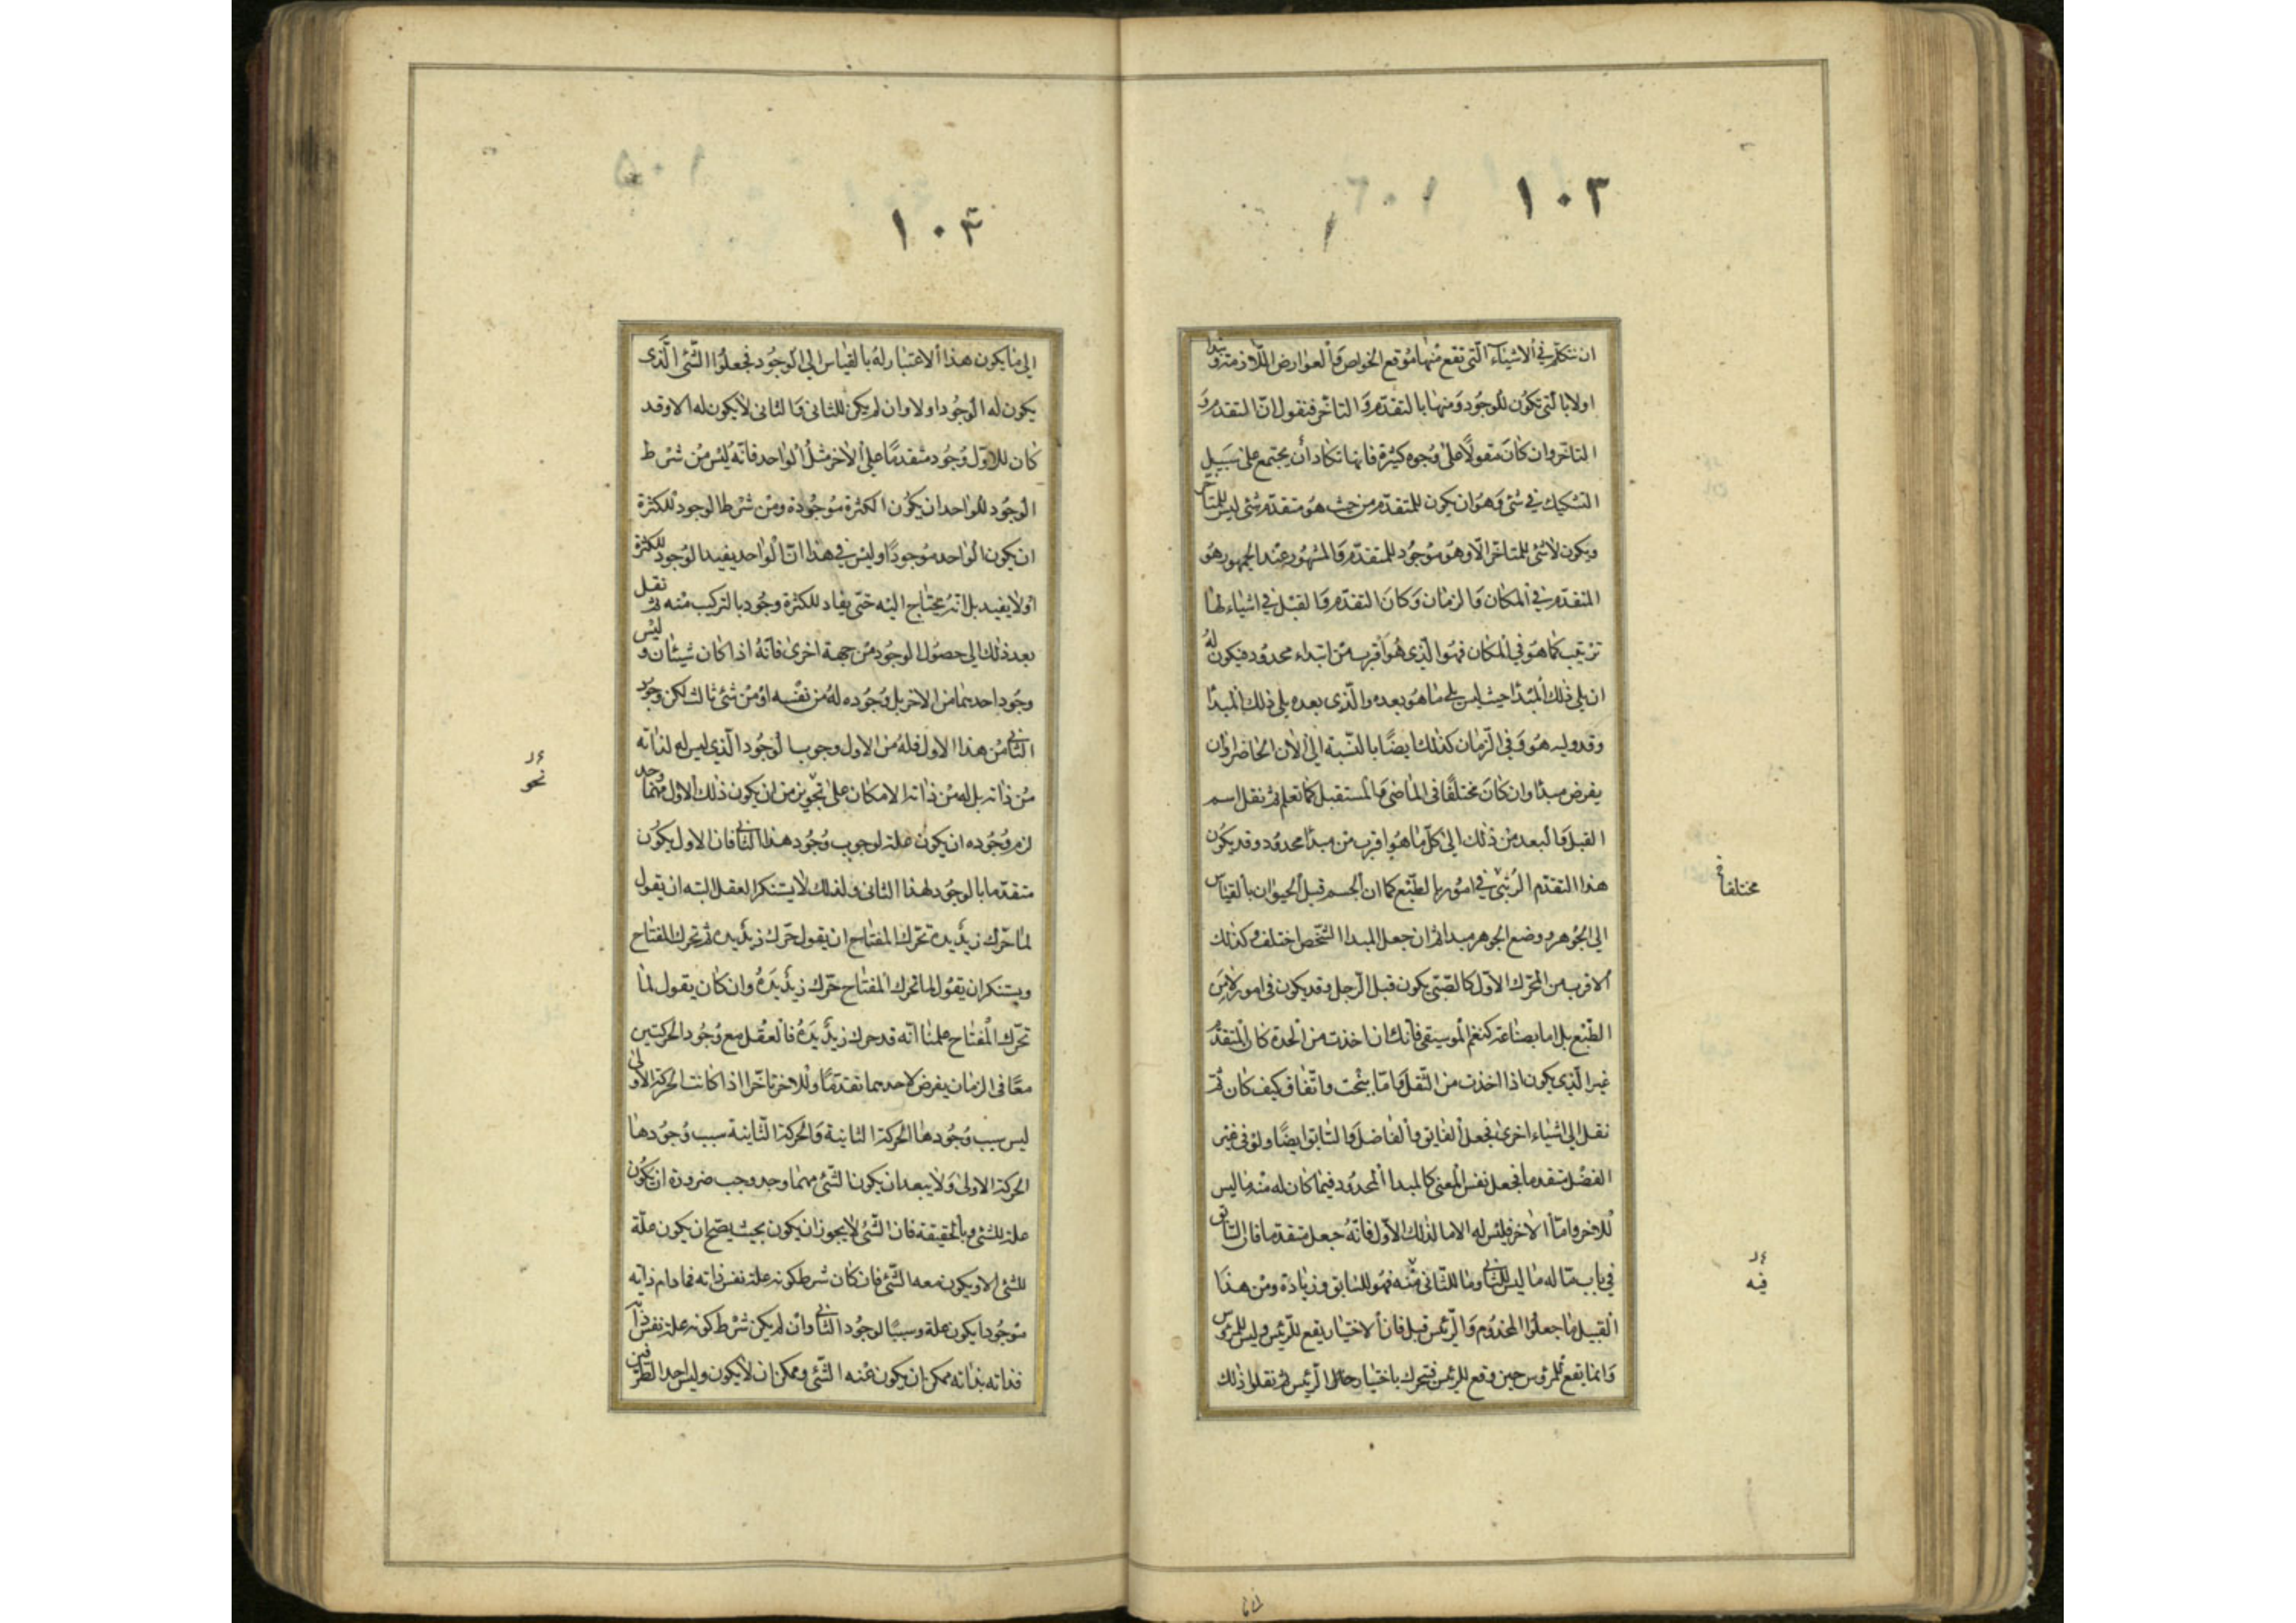 ١٠٣
ان نتكلم في الاشياء الّتي تقع منها موقع الخواص والعوارض اللّازمة ونبدا
اولا بالّتي تكون للوجود ومنها بالتقدّم والتاخّر فنقول انّ التقدم و
التاخّر وان كان مقولًا على وجوه كثيرة فانها تكاد أن يجتمع على سبيل
التشكيك في شئ وهو ان يكون للمتقدّم من حيث هو متقدّم شئ ليس للمتأخر
ويكون لا شئ للمتاخّر الّا وهو موجود للمتقدّم والمشهور عند الجمهور هو
المتقدّم في المكان والزمان وكان التقدّم والقبل في اشياء لها
ترتيب كما هو في المكان فهو الّذي هو أقرب من ابتداء محدود فيكون له
ان يلي ذلك المبدأ حيث ليس يلي ما هو بعده والّذي بعده يلي ذلك المبدأ
وقد وليه هو وفي الزمان كذلك ايضًا بالنّسبة الى الان الحاضر او ان
يفرض مبدأ وان كان مختلفًا في الماضي والمستقبل كما تعلم ثم نقل اسم
القبل والبعد من ذلك الى كلّ ما هو اقرب من مبدأ محدود وقد يكون
هذا التقدّم الرّتبيّ في امور بالطّبع كما ان الجسم قبل الحيوان بالقياس
الى الجوهر ووضع الجوهر مبدا ثم ان جعل المبدا الشّخص اختلف وكذلك
الاقرب من المحّرك الاوّل كالصّبّي يكون قبل الرّجل وقد يكون في امور لا من
الطّبع بل اما بصناعة كنغم الموسيقى فأنك ان اخذت من الحدة كان المتقدّم
غير الّذي يكون اذا اخذت من الثّقل وامّا ببخت واتّفاق كيف كان ثمّ
نقل الى اشياء اخرى فجعل الفايق والفاضل والسّابق ايضًا ولو في غير
الفضل متقدما فجعل نفس المعنى كالمبدا المحدود فيما كان له منه ما ليس
للاخر وامّا الاخر فليس له الا ما لذلك الاوّل فانّه جعل متقدما فان السّابق
في باب مّا له ما ليس للثّاني وما للثّاني منه فهو للسابق وزيادة ومن هذا
القبيل ما جعلوا المخدوم والرّئيس قبل فان الاختيار يقع للرّئيس وليس للمرؤس
وانما يقع للمرؤس حين وقع للرئيس فتحرك باختيار الرّئيس ثم نقلوا ذلك
مختلفا في
فيه
١٠٤
الى ما يكون هذا الاعتبار له بالقياس الى الوجود فجعلوا الشّئ الّذي
يكون له الوجود اولا وان لم يكن للثاني والثاني لا يكون له الا وقد
كان للاوّل وجود متقدمًا على الاخر مثل الواحد فانّه ليس من شرط
الوجود للواحد ان يكون الكثرة موجودة ومن شرط الوجود للكثرة
ان يكون الواحد موجودًا وليس في هذا انّ الواحد يفيد الوجود للكثرة
او لا يفيد بل انّه يحتاج اليه حتى يفاد للكثرة وجود بالتركيب منه ثم نقل
بعد ذلك الى حصول الوجود من جهة اخرى فانّه اذا كان شيئان وليس
وجود احدهما من الاخر بل وجوده له من نفسه او من شئ ثالث لكن وجود
الثّاني من هذا الاول فله من الاول وجوب الوجود الّذي ليس له لذاته
من ذاته بل له من ذاته الامكان على تجويز من ان يكون ذلك الاول مهما وجد
لزم وجوده ان يكون علة لوجوب وجود هذا الثّاني فان الاول يكون
متقدّما بالوجود لهذا الثاني ولذلك لا يستنكر العقل البتة ان يقول
لما حرّك زيد يده تحّرك المفتاح ان يقول حرّك زيد يده ثم تحرك المفتاح
ويستنكر ان يقول لما تحرك المفتاح حرّك زيد يده وان كان يقول لما
تحرّك المفتاح علمنا انّه قد حرك زيد يده فالعقل مع وجود الحركتين
معًا في الزمان يفرض لاحدهما تقدمًا وللاخر تاخّرا اذا كانت الحركة الاولى
ليس سبب وجودها الحركة الثانية والحركة الثّانية سبب وجودها
الحركة الاولى ولا يبعد ان يكون الشّئ مهما وجد وجب ضرورة ان يكون
علة للشئ وبالحقيقة فان الشّئ لا يجوز ان يكون بحيث يصّح ان يكون علّة
للشئ الا ويكون معه الشّئ فان كان شرط كونه علة نفس ذاته فما دام ذاته
موجودا يكون علة وسببًا لوجود الثّاني وان لم يكن شرط كونه علة نفس ذاته
فذاته بذاته ممكن ان يكون عنه الشّئ وممكن ان لا يكون وليس احد الطّرفين
نحو